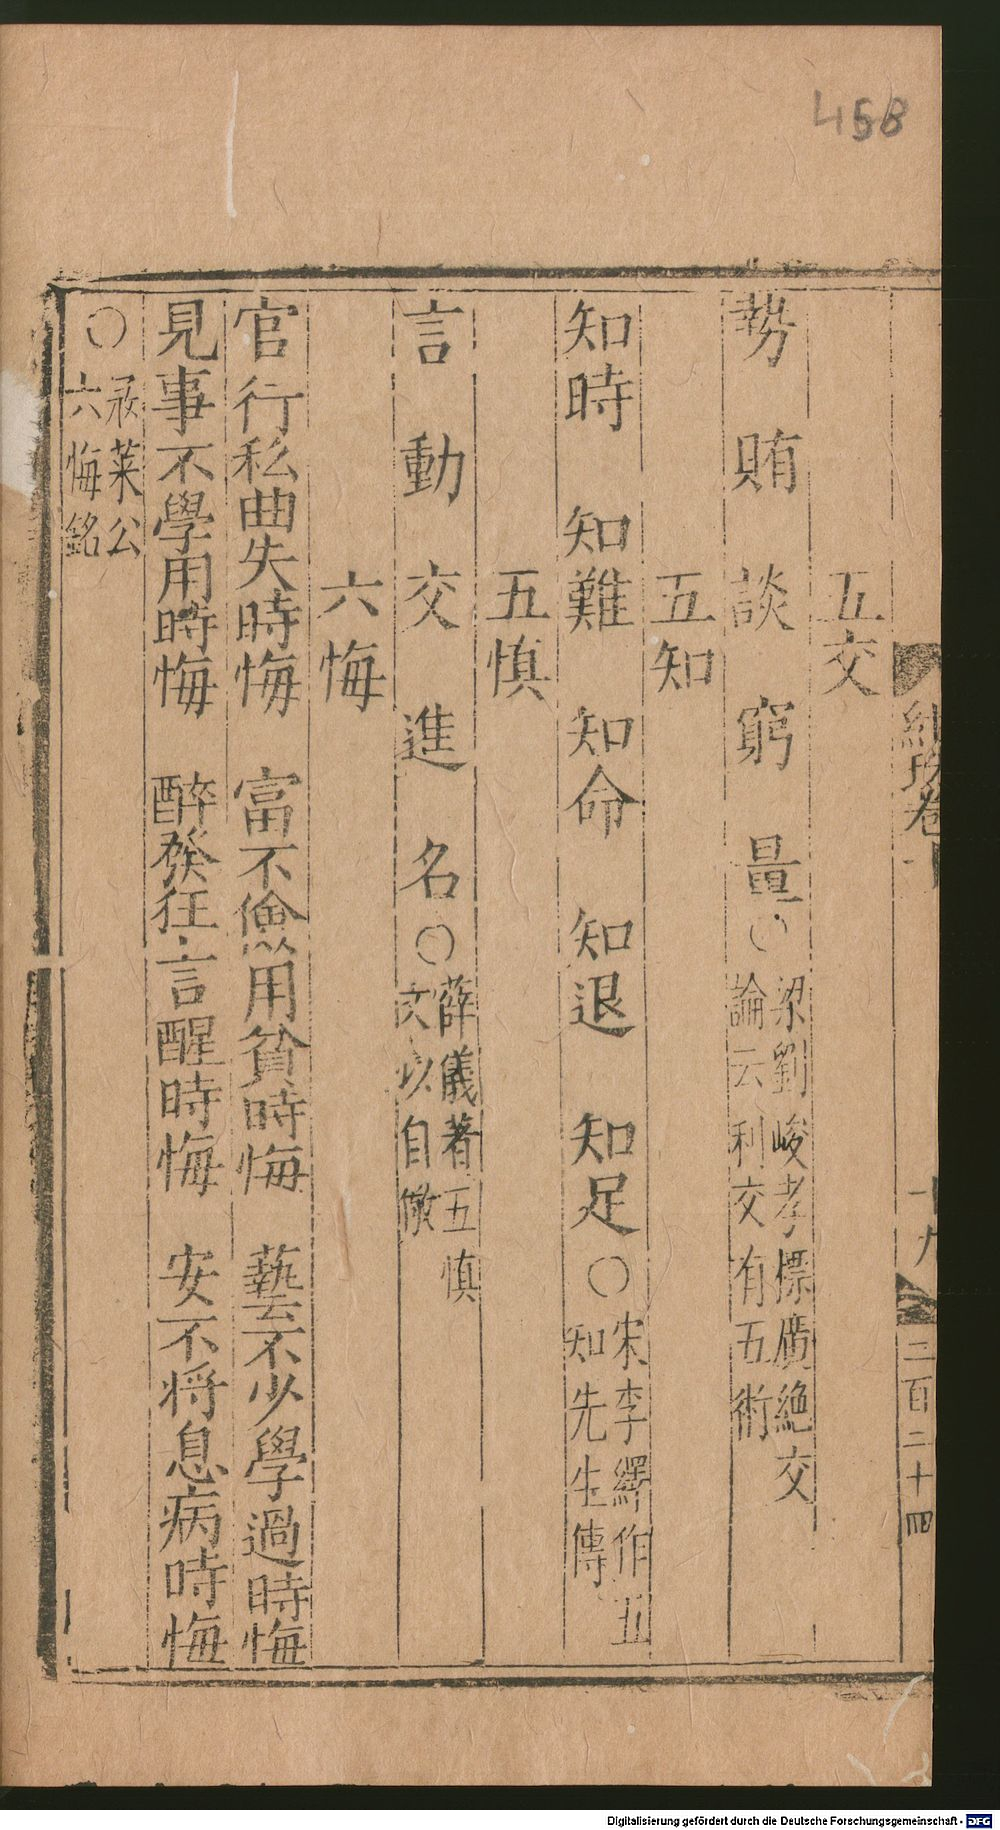 458
卷十
十九
三百二十四
五交
勢 賄 談 窮 量○梁劉峻孝標廣絶交
論云利交有五術
五知
知時 知難 知命 知退 知足○宋李繹作五
知先生傳
五慎
言 動 交 進 名○薛儀著五慎
文以自儆
六悔
官行私曲失時悔 富不儉用貧時悔 藝不少學過時悔
見事不學用時悔 醉發狂言醒時悔 安不将息病時悔
○萊公
六悔銘
Digitalisierung gefördert durch die Deutsche Forschungsgemeinschaft - DFG